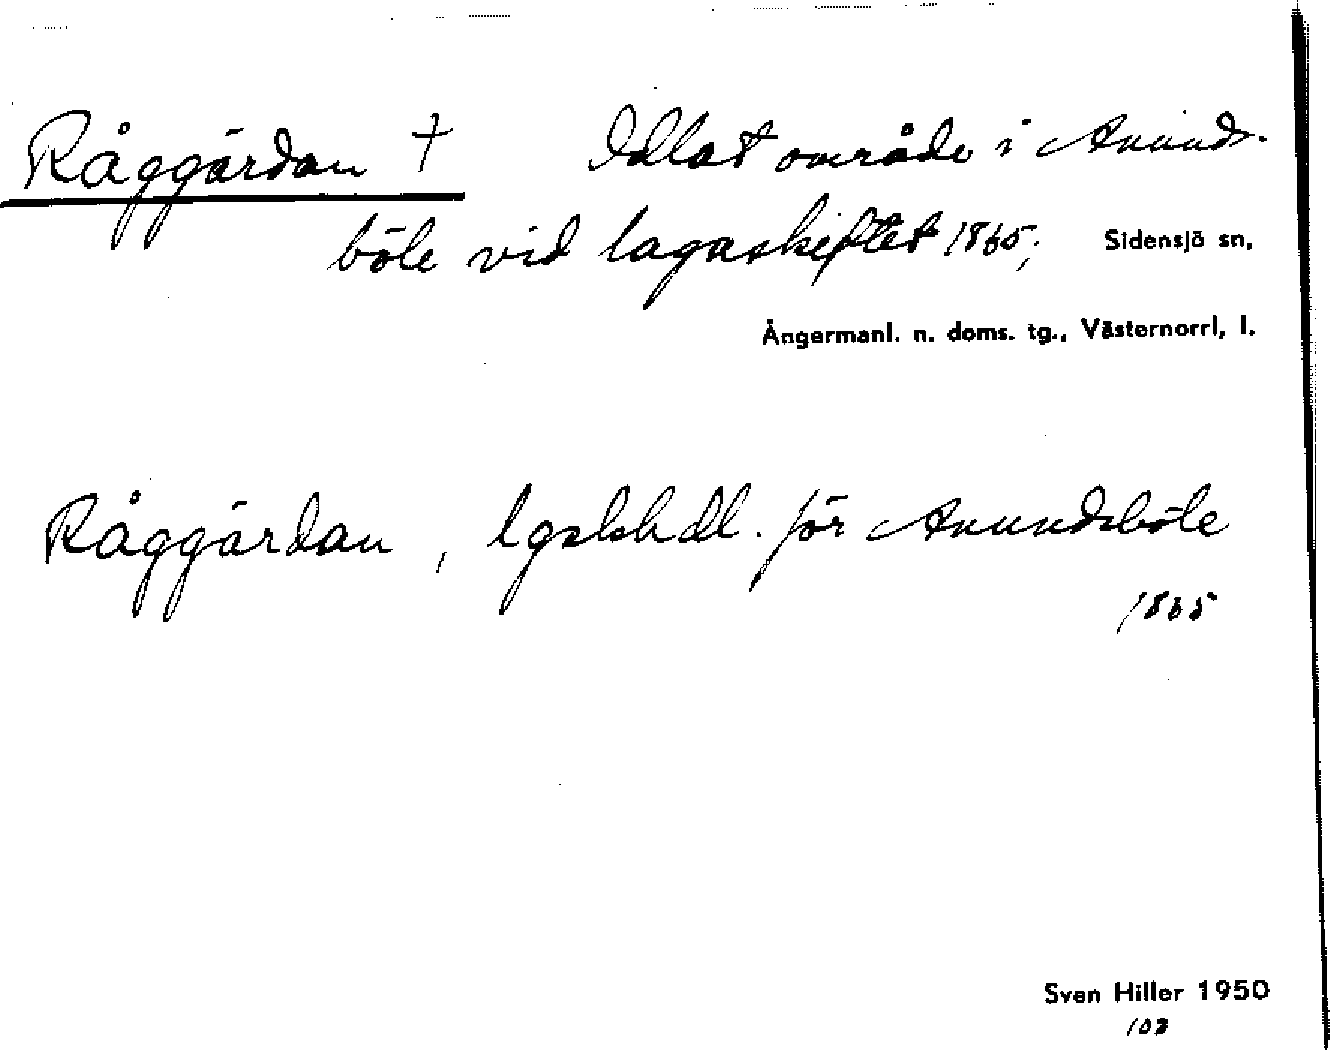 Råggärdan † Odlat område i Anunds-
böle vid lagaskiftet 1865; Sidensjö sn,
Ångermanl. n. doms. tg., Västernorrl, l.
Råggärdan, lgskhdl. för Anundsböle
1865
Sven Hiller 1950
103